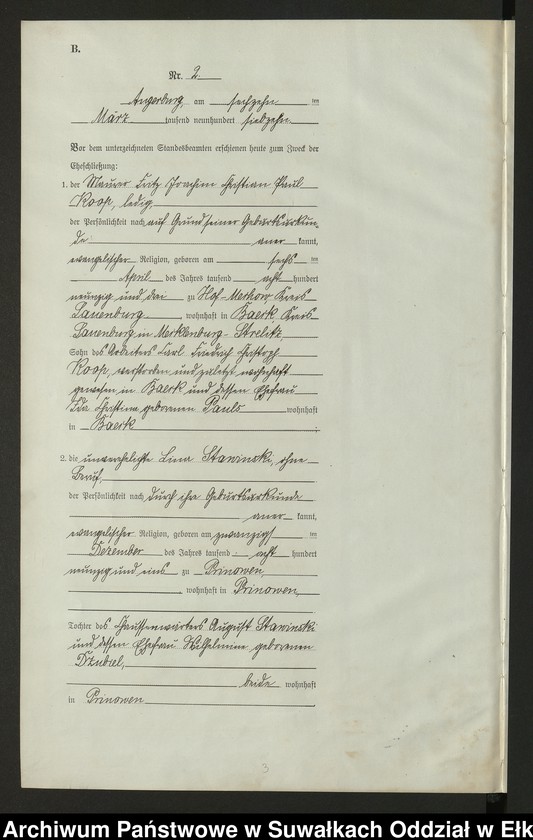 B.
Nr. 2.
Angerburg, am sechzehnten
März tausend neunhundert siebzehn.
Vor dem unterzeichneten Standesbeamten erschienen heute zum Zweck der
Eheschließung:
1. der Maurer Fritz Joachim Christian Paul
Koop, ledig,
der Persönlichkeit nach auf Grund seiner Geburtsurkun-
de anerkannt,
evangelischer Religion, geboren am sechsten
April des Jahres tausend achthundert
neunzig und drei zu Hof-Mechow, Kreis
Lauenburg wohnhaft in Baerk Kreis
Lauenburg in Mecklenburg-Strelitz,
Sohn des Arbeiters Karl Friedrich Christoph
Koop, verstorben und zuletzt wohnhaft
gewesen in Baerk und dessen Ehefrau
Ida Christine geborenen Pauls wohnhaft
in Baerk
2. die unverehelichte Lina Stawinski, ohne
Beruf,
der Persönlichkeit nach durch ihre Geburtsurkunde
anerkannt,
evangelischer Religion, geboren am zwanzigsten
Dezember des Jahres tausend achthundert
neunzig und eins zu Prinowen,
wohnhaft in Prinowen,
Tochter des Chausseewärters August Stawinski
und dessen Ehefrau Wilhelmine geborenen
Dzubiel,
beide wohnhaft
in Prinowen
3
Archiwum Państwowe w Suwałkach Oddział w Ełk